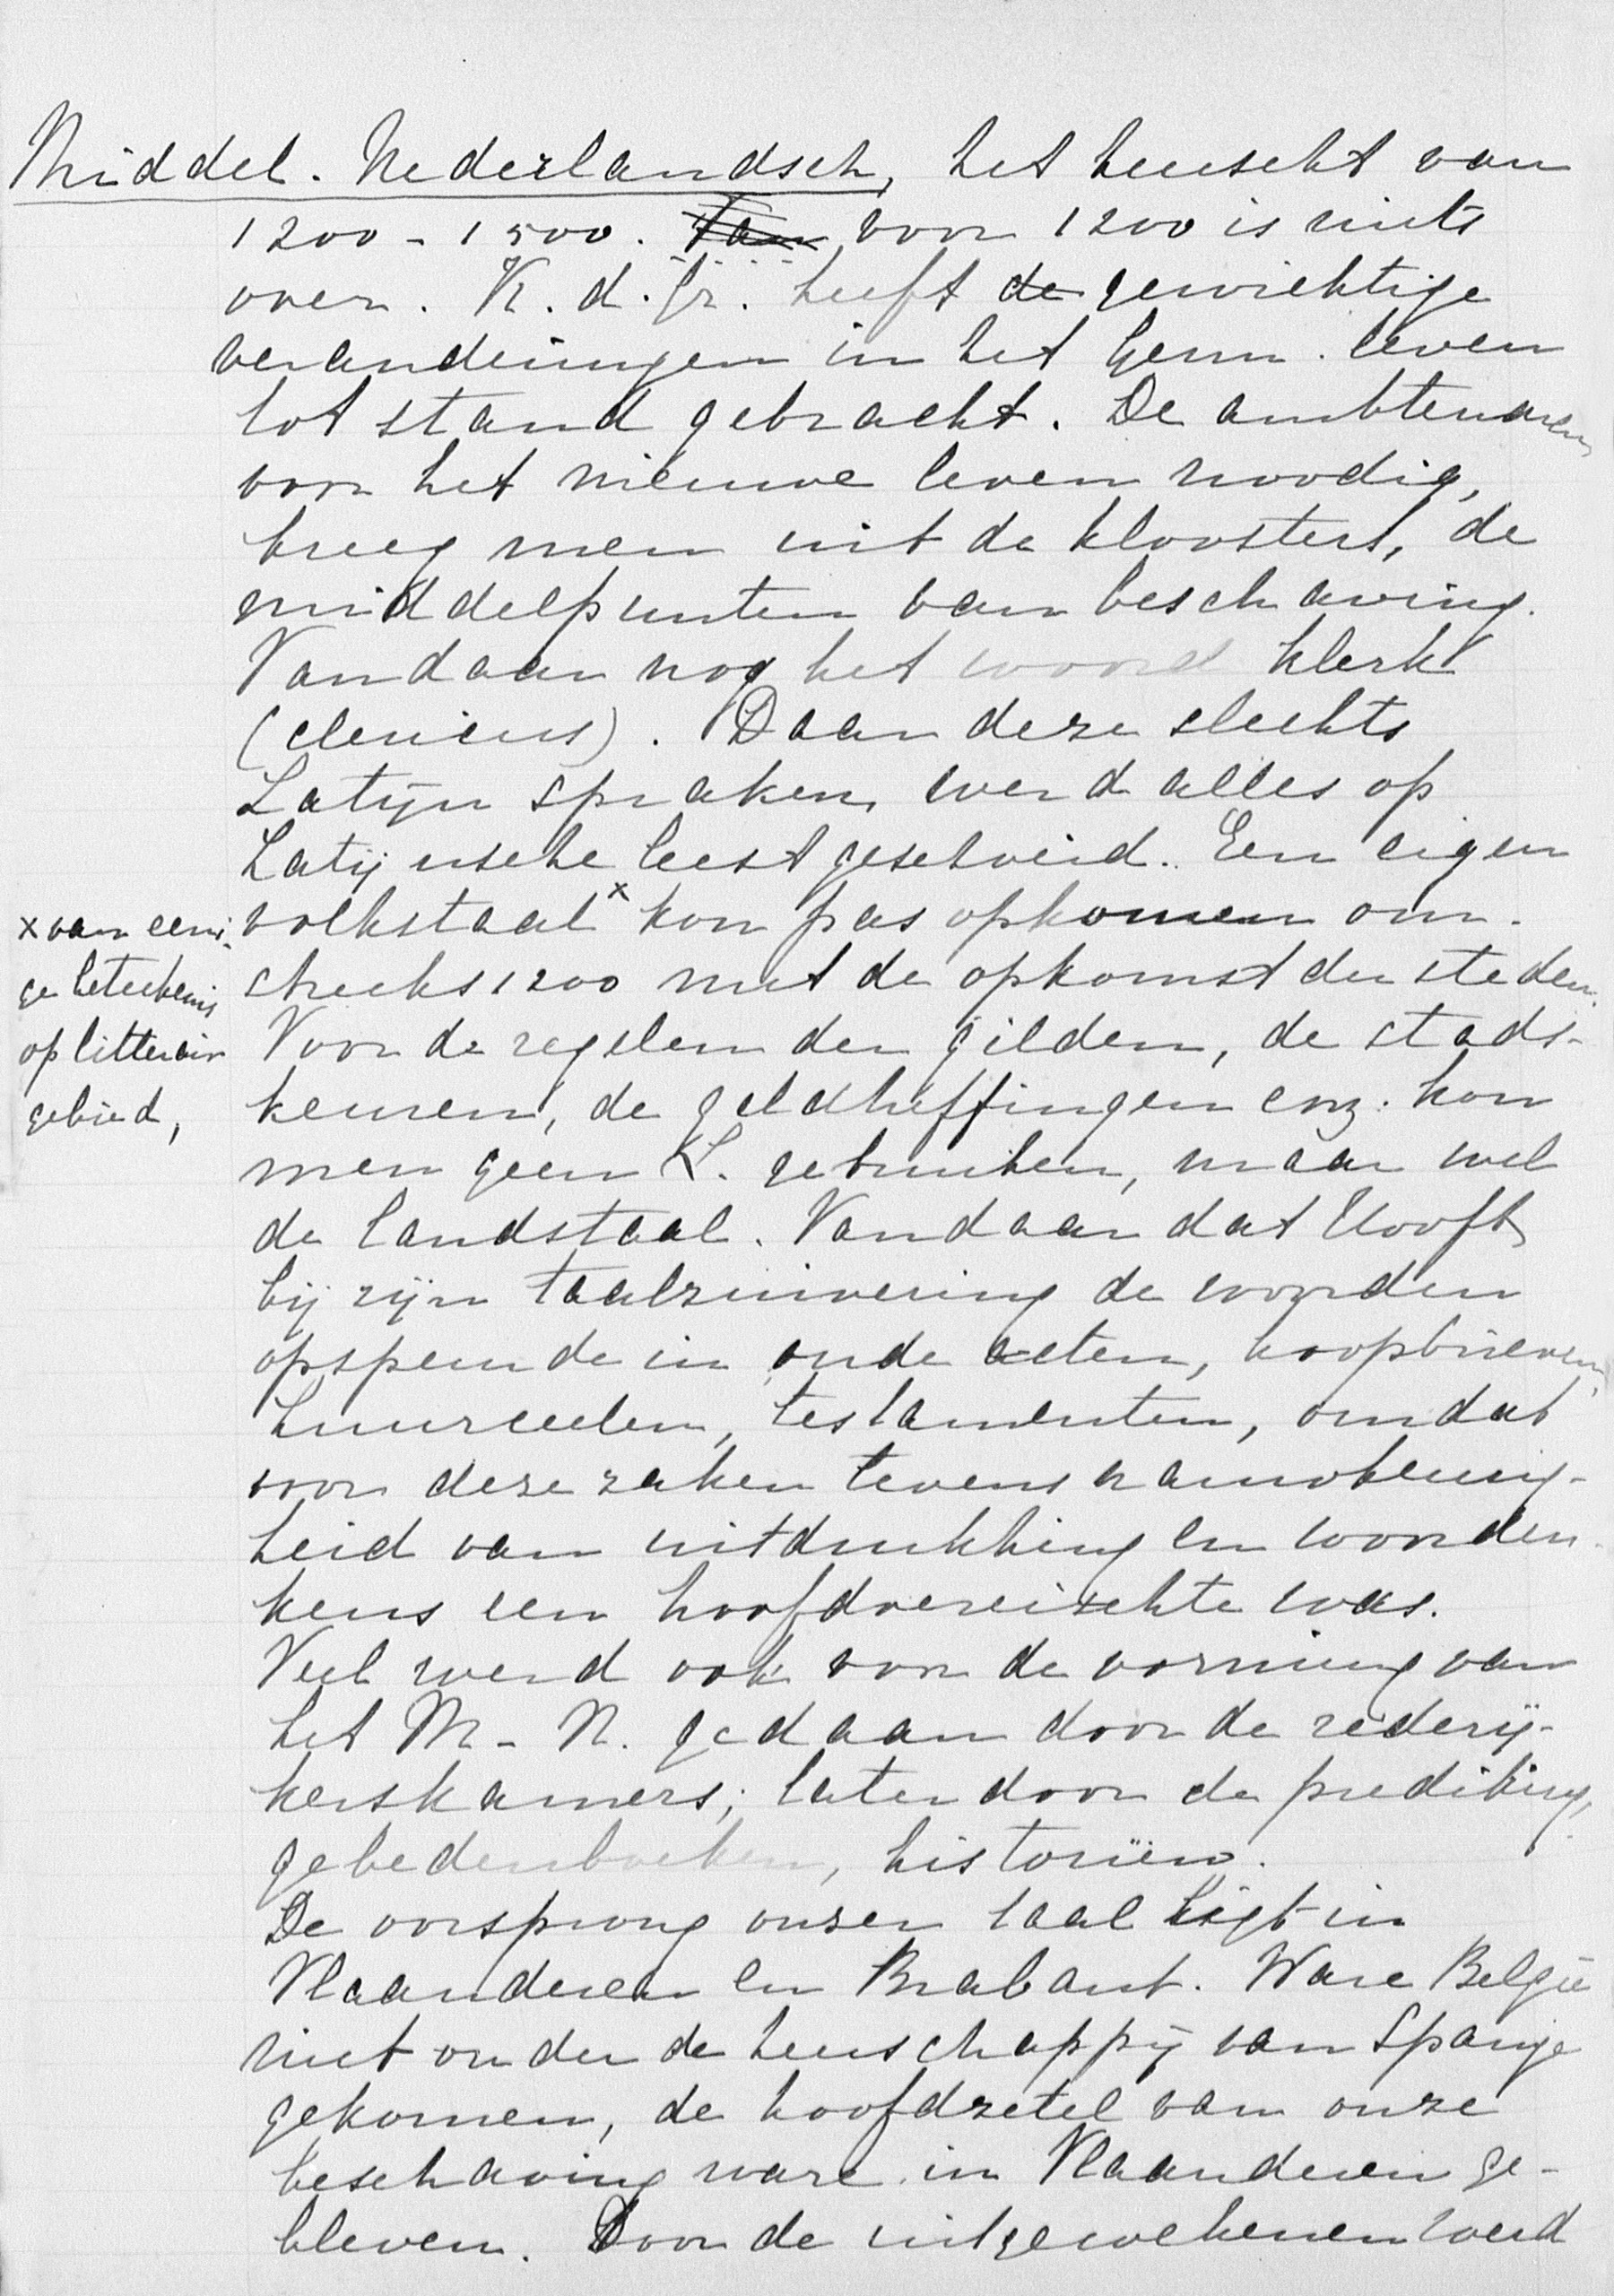 Middel-Nederlandsch, het heerscht van
1200-1500. Van voor 1200 is niets
over. K. d. Gr. heeft de gewichtige
veranderingen in het Germ. leven
tot stand gebracht. De ambtenaren
voor het nieuwe leven noodig,
kreeg men uit de kloosters, de
middelpunten van beschaving.
Vandaar nog het woord klerk
(clericus). Daar deze slechts
Latijn spraken, werd alles op
Latijnsche leest geschoeid. Een eigen
volkstaal x kon pas opkomen om-
x van eeni-
ge beteekenis
op litterair
gebied,
streeks 1200 met de opkomst der steden.
Voor de regelen der gilden, de stads-
keuren, de geldheffingen enz. kon
men geen L. gebruiken, maar wel
de landstaal. Vandaar dat Hooft
bij zijn taalzuivering de woorden
opspeurde in oude acten, koopbrieven,
huurceelen, testamenten, omdat
voor deze zaken tevens nauwkeurig-
heid van uitdrukking en woorden-
keus een hoofdvereischte was.
Veel werd ook voor de vorming van
het M-N. gedaan door de rederij-
kerskamers; later door de prediking,
gebedenboeken, historiën.
De oorsprong onzer taal ligt in
Vlaanderen en Brabant. Ware België
niet onder de heerschappij van Spanje
gekomen, de hoofdzetel van onze
beschaving ware in Vlaanderen ge-
bleven. Door de uitgewekenen werd